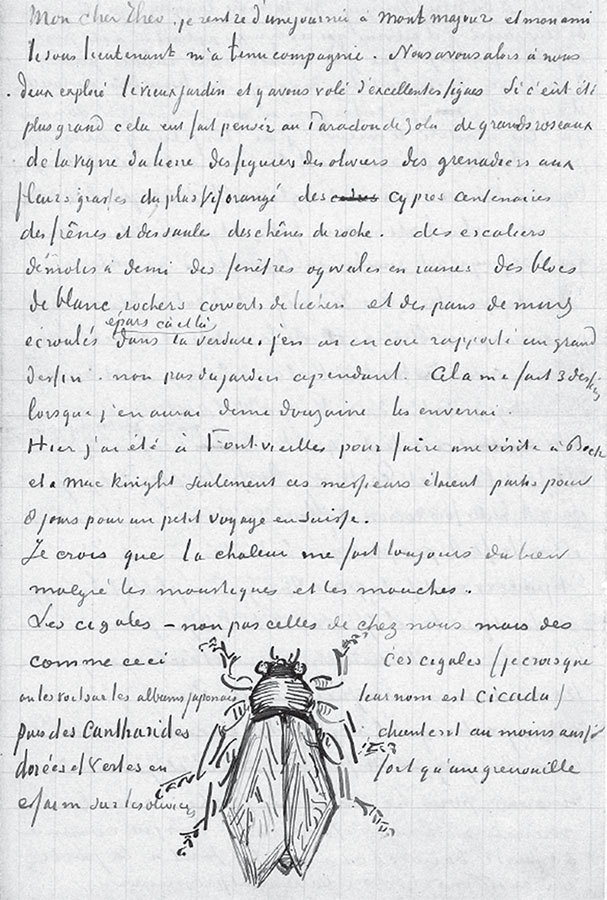 Mon cher Theo, je rentre d'une journée à Mont majour et mon ami
le sous lieutenant m'a tenu compagnie. Nous avons alors à nous
deux exploré le vieux jardin et y avons volé d'excellentes figues. Si c'eût été
plus grand cela eut fait penser au Paradou de Zola de grands roseaux
de la vigne du lierre des figuiers des oliviers des grenadiers aux
fleurs grasses du plus vif orangé des cypres centenaires
des frênes et des saules des chênes de roche. des escaliers
démolis à demi des fenêtres ogivales en ruines des blocs
de blanc rochers couverts de lichen et des pans de murs
épars çà et là
écroulés dans la verdure. j'en ai encore rapporté un grand
dessin. non pas du jardin cependant. Cela me fait 3 dessins
lorsque j'en aurai demie douzaine les enverrai.
Hier j'ai été à Fontvieilles pour faire une visite à Bock
et a Mac Knight seulement ces messieurs étaient partis pour
8 jours pour un petit voyage en Suisse.
Je crois que la chaleur me fait toujours du bien
malgré les moustiques et les mouches.
Les cigales – non pas celles de chez nous mais des
comme ceci
on les voit sur les albums japonais
puis des Cantharides
dorées et vertes en
essaim sur les oliviers
Ces cigales (je crois que
leur nom est cicada)
chantent au moins aussi
fort qu'une grenouille